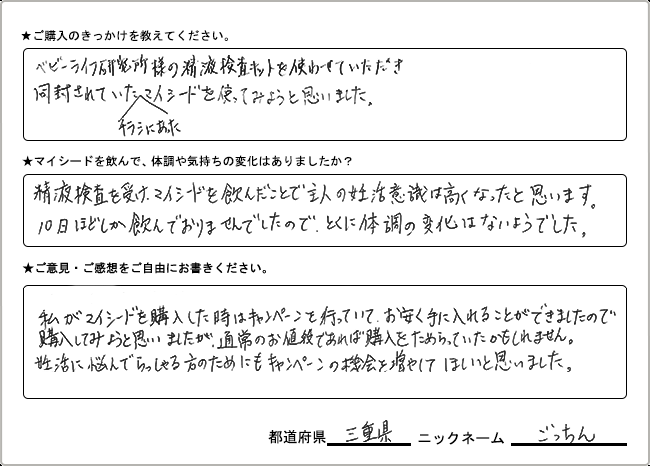 ★ご購入のきっかけを教えてください。
ベビーライフ研究所様の精液検査キットを使わせていただき
同封されていたマイシードを使ってみようと思いました。
チラシにあった
★マイシードを飲んで、体調や気持ちの変化はありましたか？
精液検査を受け、マイシードを飲んだことで主人の妊活意識は高くなったと思います。
10日ほどしか飲んでおりませんでしたので、とくに体調の変化はないようでした。
★ご意見・ご感想をご自由にお書きください。
私がマイシードを購入した時はキャンペーンを行っていて、お安く手に入れることができましたので
購入してみようと思いましたが、通常のお値段であれば購入をためらっていたかもしれません。
妊活に悩んでらっしゃる方のためにもキャンペーンの機会を増やしてほしいと思いました。
都道府県 三重県 ニックネーム ごっちん